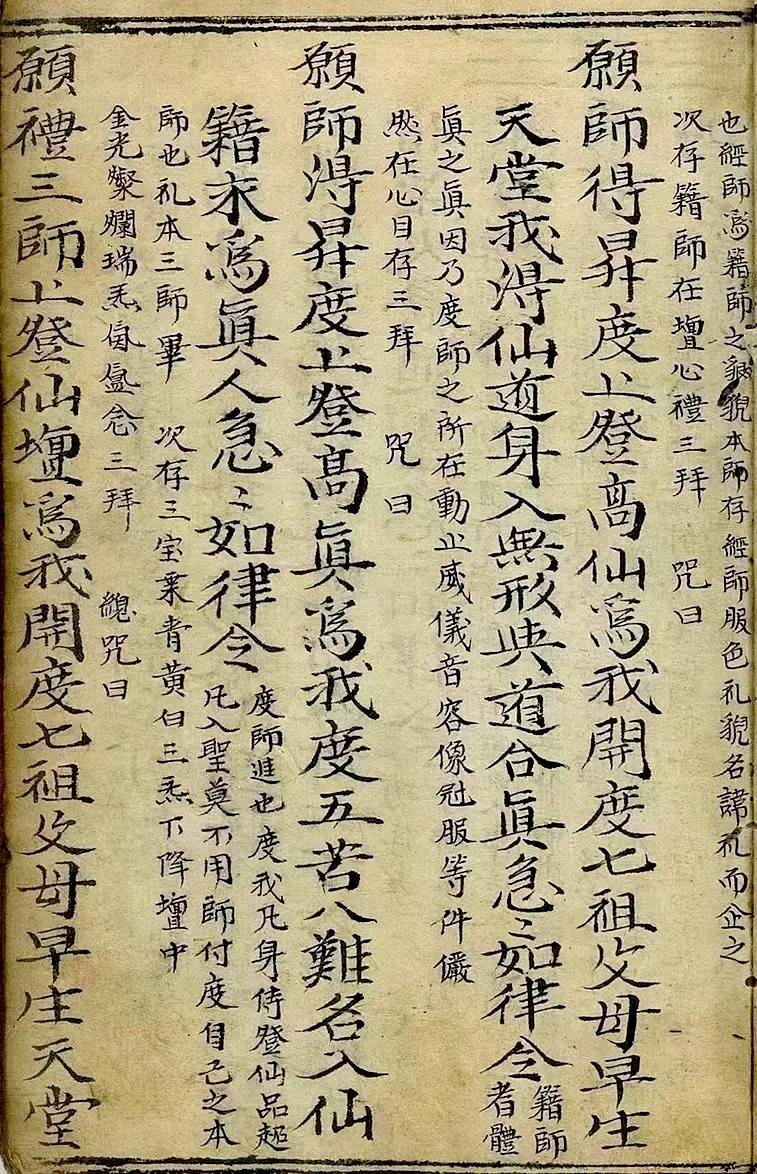 也經師爲籍師之貌本師存經師服色礼貌名諱礼而企之
次存籍師在壇心禮三拜 咒曰
願師得昇度上登高仙爲我開度七祖父母早生
天堂我得仙道身入無形與道合眞急〻如律令
籍師
者體
眞之眞因乃度師之所在動止威儀音容像冠服等件儼
然在心目存三拜 咒曰
願師得昇度上登高眞爲我度五苦八難名入仙
籍永爲眞人急〻如律令
度師進也度我凡身侍登仙品超
凡入聖莫不用師付度自己之本
師也礼本三師畢 次存三宝葉青黄白三炁下降壇中
金光燦爛瑞炁氤氳念三拜 總咒曰
願禮三師上登仙壇爲我開度七祖父母早生天堂